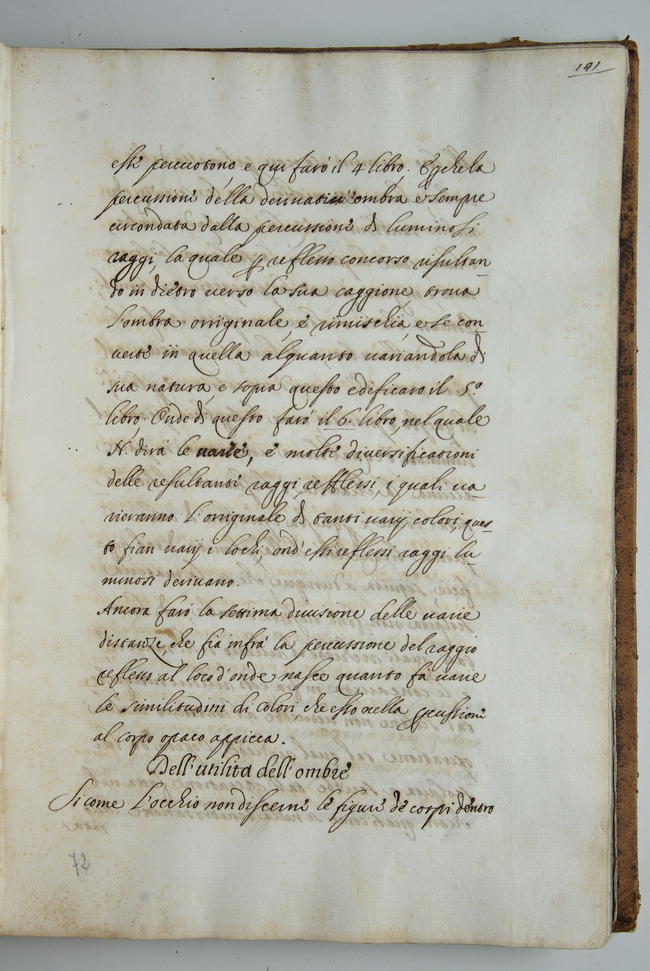 191
essi percuotono e qui farò il 4 libro. E p̱che la
percussione della derivativa ombra è sempre
circondata dalla percussione di luminosi
raggi, la quale p̱ reflesso concorso risultan-
do in dietro verso la sua caggione trova
l'ombra orriginale, e rimischia, e se con-
verte in quella alquanto variandola di
sua natura, e sopra questo edificarò il 5.º
libro. Onde di questo farò il 6. libro, nel quale
N. dirà le varie, e molte diversificationi
delle resultanti raggi, refflessi, i quali va-
rieranno l'orriginale di tanti varij colori, ques-
to fian varij i lochi, ond'essi reflessi raggi lu-
minosi derivano.
Ancora farò la settima divisione delle varie
distanze che fia infrà la percussione del raggio
reflesso al loco d'onde nasce quanto fà varie
le similitudini di colori, che esso nella p̱cussione
al corpo opaco appicca.
Dell'utilità dell'ombre
Si come l'occhio non discerne le figure de corpi dentro
72